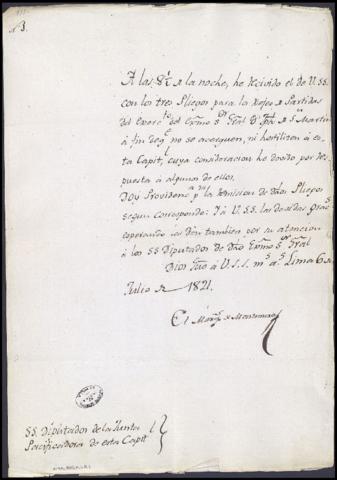 A las 8½ de la noche, he recivido el de V.SS.
con los tres Pliegos para los Xefes de Partidas
del Exercto del Exmo Sor Gral Dn José de Sn Martin
á fin de qe no se acerquen, ni hostilizen á es-
ta Capitl, cuya consideracion he dado por res-
puesta á algunos de ellos.
Doy Providencia pa la remision de dhos Pliegos
segun corresponde: Y á V.SS. las devidas gracs
esperando las dén tambien por su atencion
á los SS Diputados de dho Exmo Sor Gral
Dios gue á V.S.S. ms as Lima 6 de
Julio de 1821.
El Marqs de Montemira
SS Diputados de la Junta
Pacificadora de esta Capitl